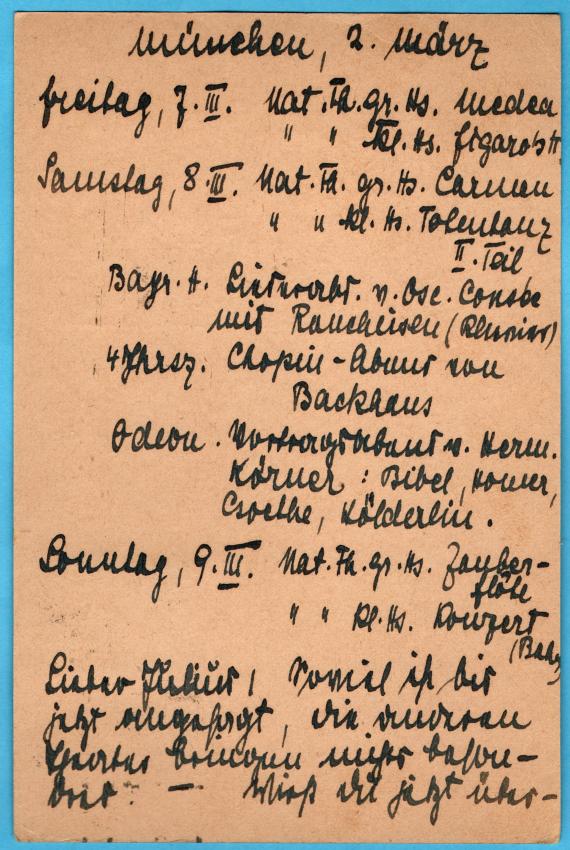 München, 2. März
Freitag, 7. III. Nat. Th. gr. Hs. Medea
" " kl. Hs. Figaro's H.
Samstag, 8. III. Nat. Th. gr. Hs. Carmen
" " kl. Hs. Totentanz
II. Teil
Bayr. H. Liederabt. v. Osc.
mit Raucheisen (Klavier)
4 Jhrsz. Chopin-Abend von
Backhaus
Odeon. Vortragsabend v. Herm.
Körner: Bibel, Homer,
Goethe, Hölderlin.
Sonntag, 9. III. Nat. Th. gr. Hs. Zauber-
flöte
" " kl. Hs. Konzert
Lieber Julius! Soviel ist bis
jetzt angesagt, die anderen
Theater bringen nichts beson-
deres. — Wirst du jetzt über-